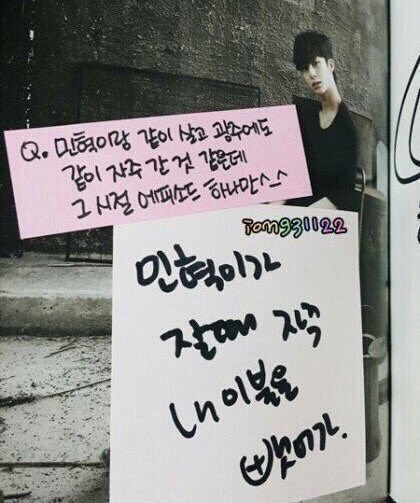 Q. 민혁이랑 같이 살고 광주에도
같이 자주 간 것 같은데
그 시절 에피소드 하나만^_^
iam931122
민혁이가
잘때 자꾸
내 이불을
뺏어가.